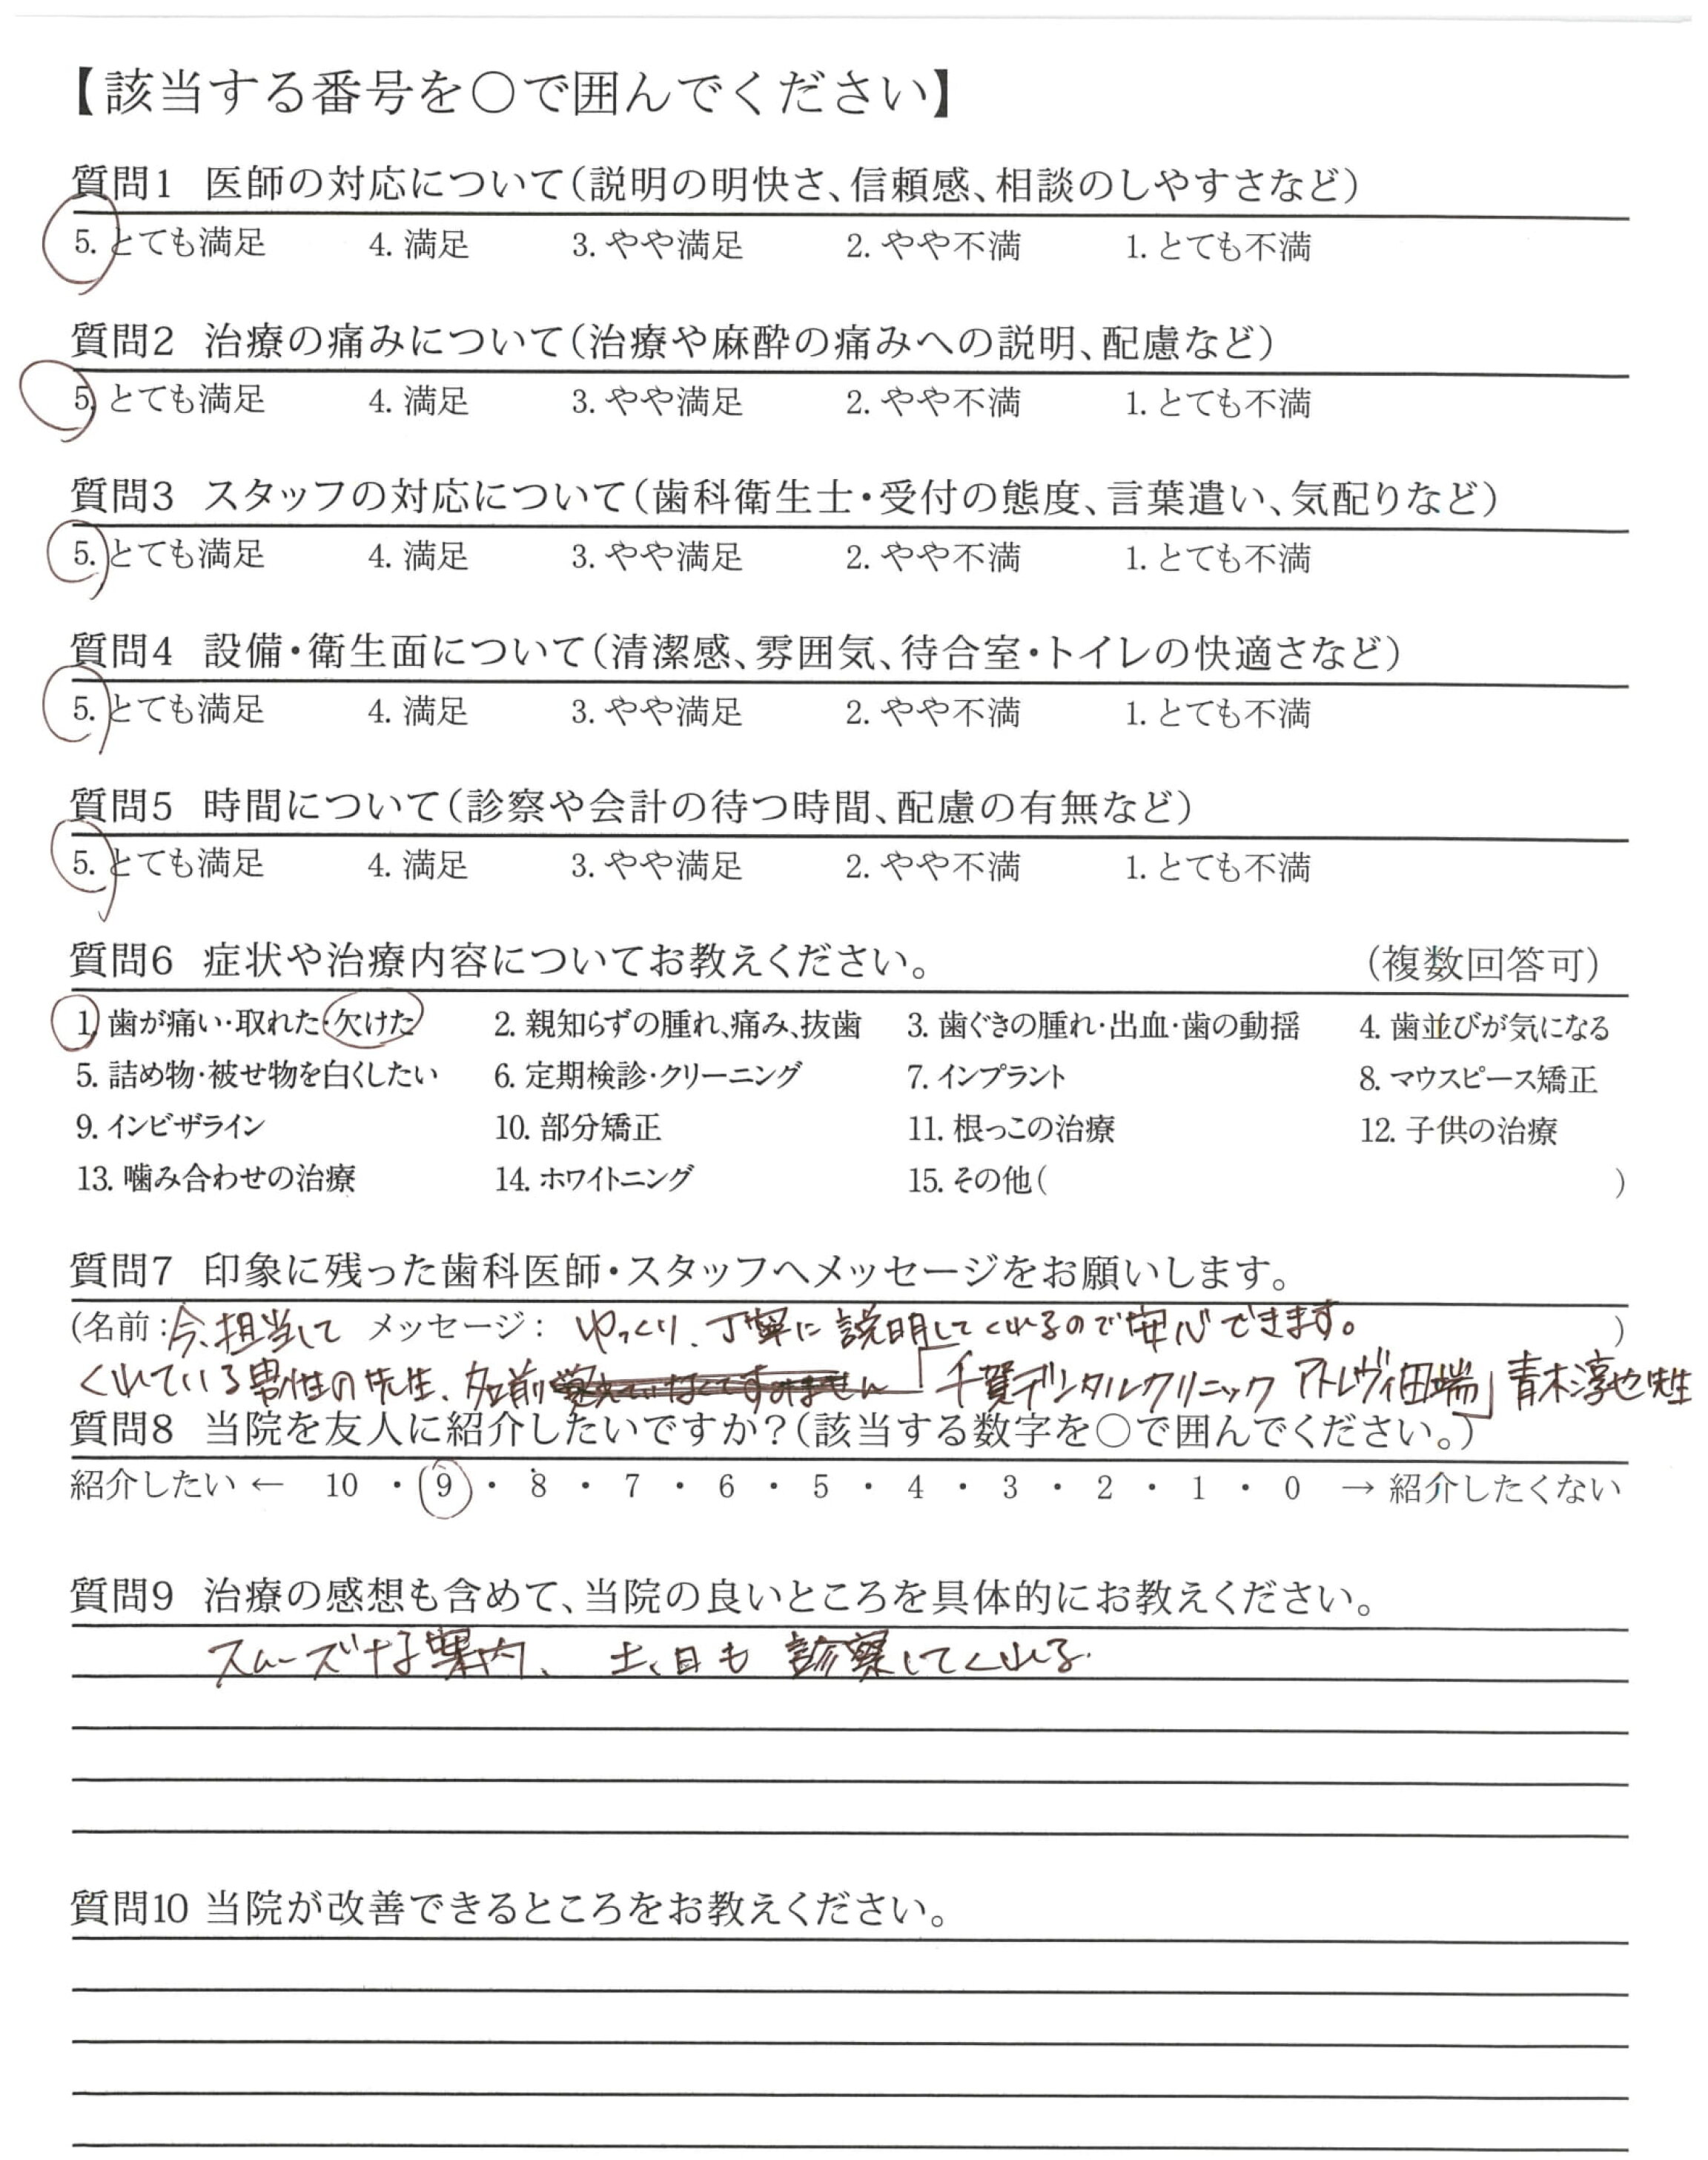 【該当する番号を○で囲んでください】
質問1 医師の対応について(説明の明快さ、信頼感、相談のしやすさなど)
5. とても満足 4. 満足 3. やや満足 2. やや不満 1. とても不満
質問2 治療の痛みについて(治療や麻酔の痛みへの説明、配慮など)
5. とても満足 4. 満足 3. やや満足 2. やや不満 1. とても不満
質問3 スタッフの対応について(歯科衛生士・受付の態度、言葉遣い、気配りなど)
5. とても満足 4. 満足 3. やや満足 2. やや不満 1. とても不満
質問4 設備・衛生面について(清潔感、雰囲気、待合室・トイレの快適さなど)
5. とても満足 4. 満足 3. やや満足 2. やや不満 1. とても不満
質問5 時間について(診察や会計の待つ時間、配慮の有無など)
5. とても満足 4. 満足 3. やや満足 2. やや不満 1. とても不満
質問6 症状や治療内容についてお教えください。 (複数回答可)
1. 歯が痛い・取れた・欠けた 2. 親知らずの腫れ、痛み、抜歯 3. 歯ぐきの腫れ・出血・歯の動揺 4. 歯並びが気になる
5. 詰め物・被せ物を白くしたい 6. 定期検診・クリーニング 7. インプラント 8. マウスピース矯正
9. インビザライン 10. 部分矯正 11. 根っこの治療 12. 子供の治療
13. 噛み合わせの治療 14. ホワイトニング 15. その他( )
質問7 印象に残った歯科医師・スタッフへメッセージをお願いします。
(名前:今、担当して メッセージ: ゆっくり、丁寧に説明してくれるので安心できます。 )
くれている男性の先生、名前覚えていなくてすみません「千賀デンタルクリニック アトレヴィ田端」青木淳也先生
質問8 当院を友人に紹介したいですか?(該当する数字を○で囲んでください。)
紹介したい ← 10 ・ 9 ・ 8 ・ 7 ・ 6 ・ 5 ・ 4 ・ 3 ・ 2 ・ 1 ・ 0 → 紹介したくない
質問9 治療の感想も含めて、当院の良いところを具体的にお教えください。
スムーズな案内、 土、日も 診察してくれる.
質問10 当院が改善できるところをお教えください。